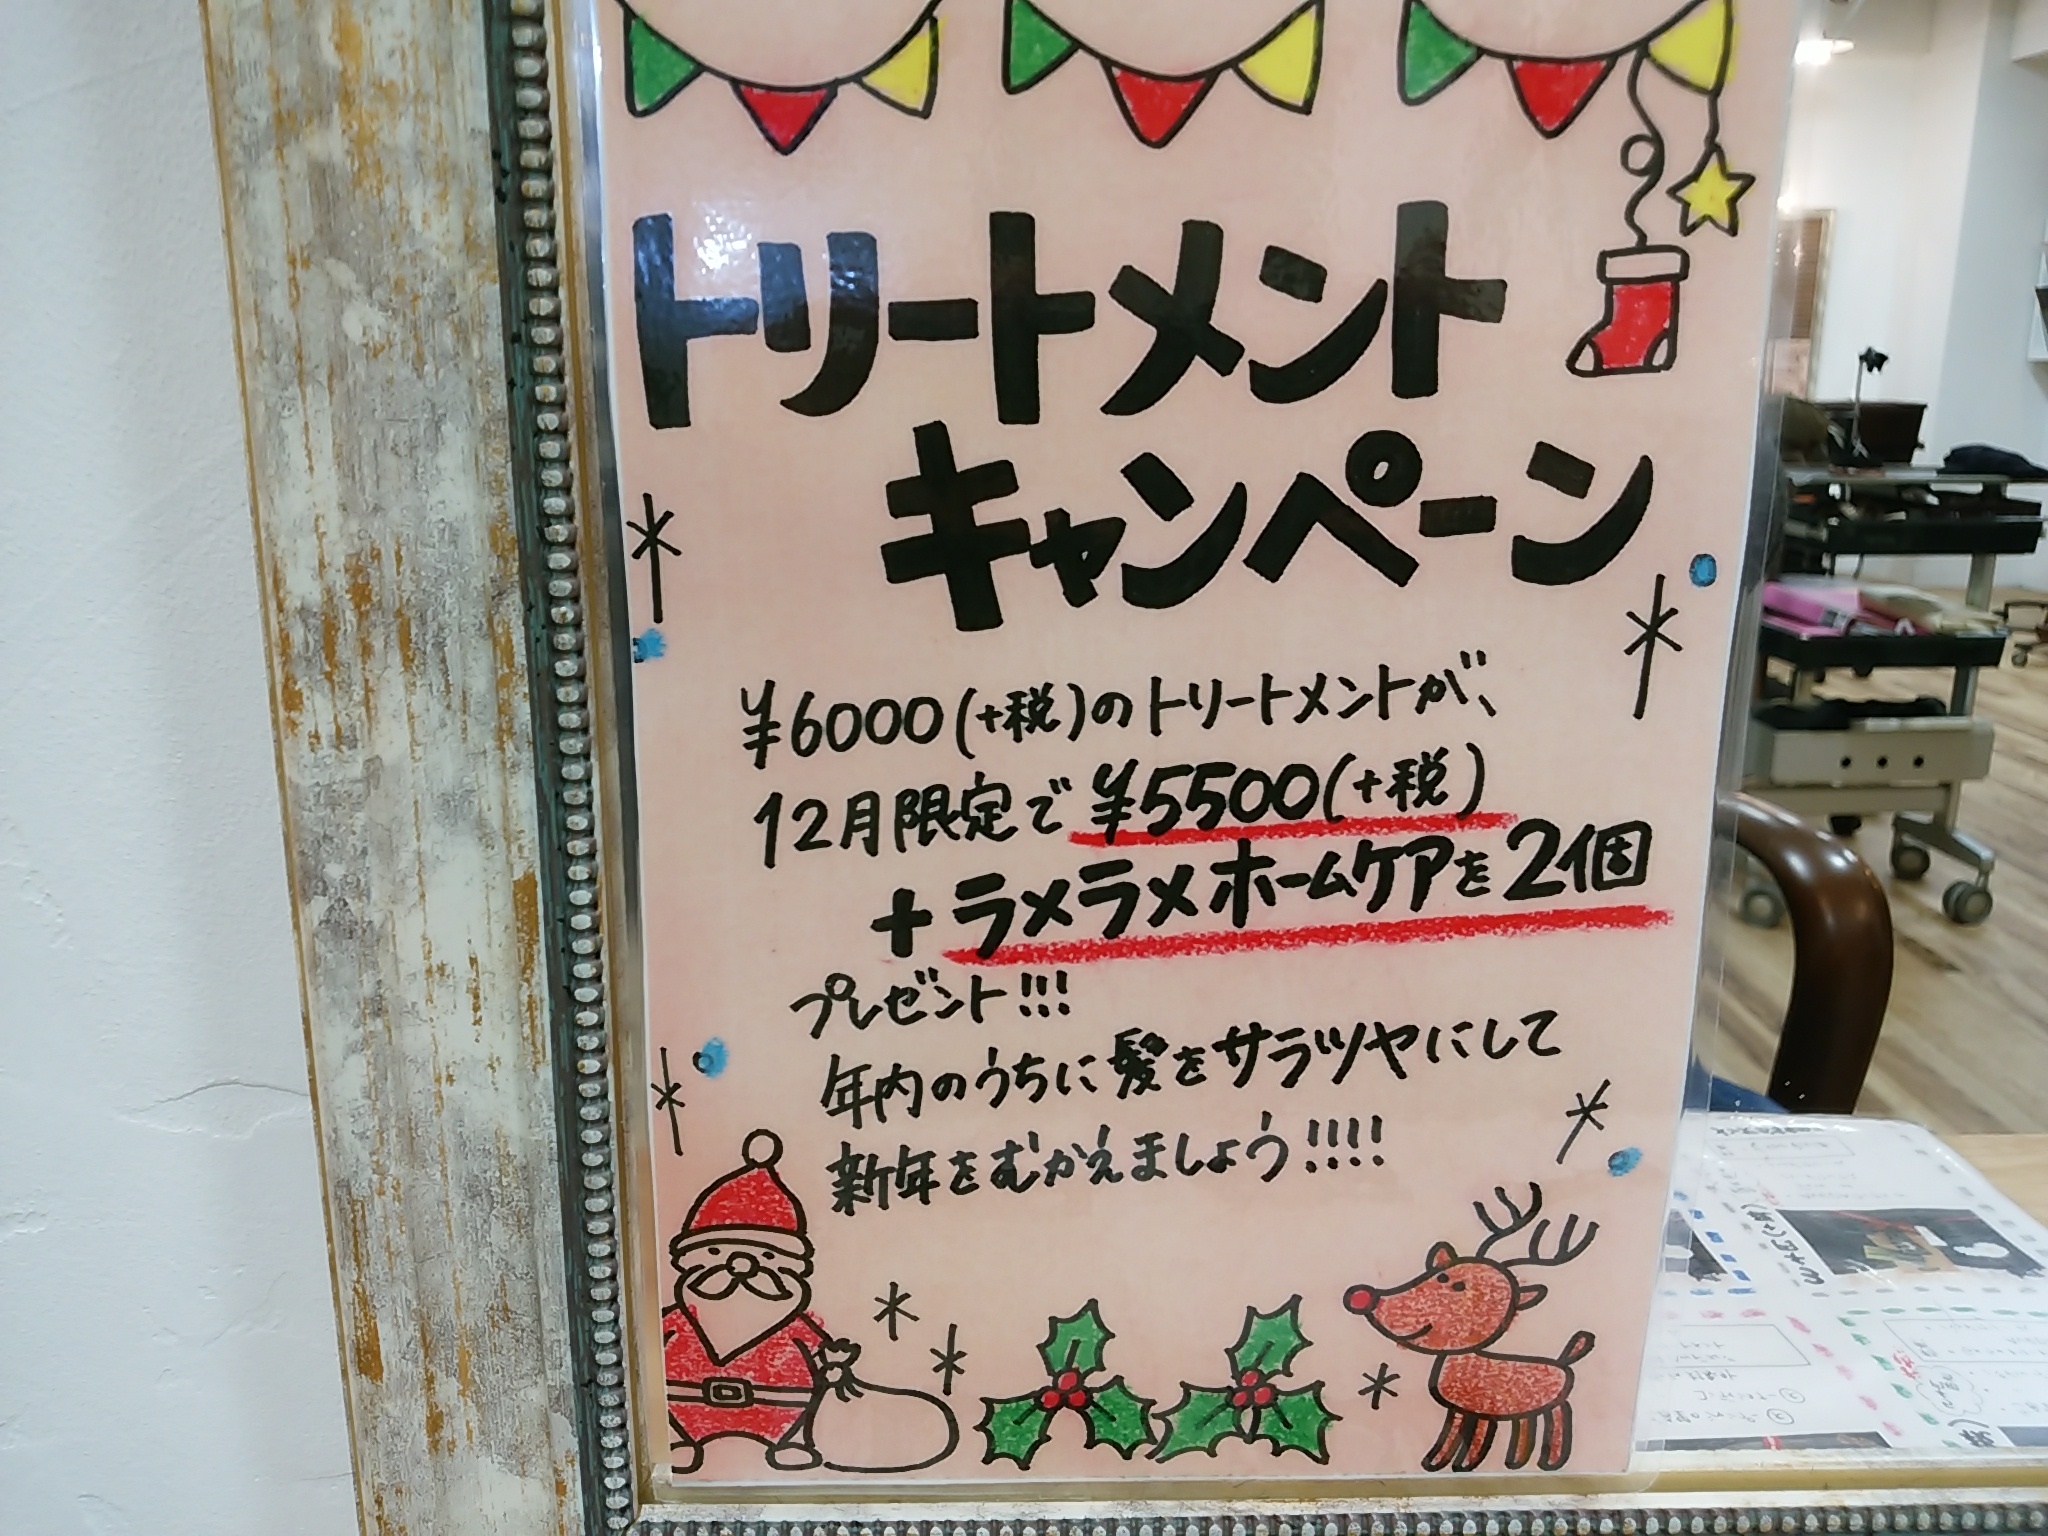 トリートメント
キャンペーン
¥6000(+税)のトリートメントが、
12月限定で¥5500(+税)
+ラメラメホームケアを2個
プレゼント!!!
年内のうちに髪をサラツヤにして
新年をむかえましょう!!!!